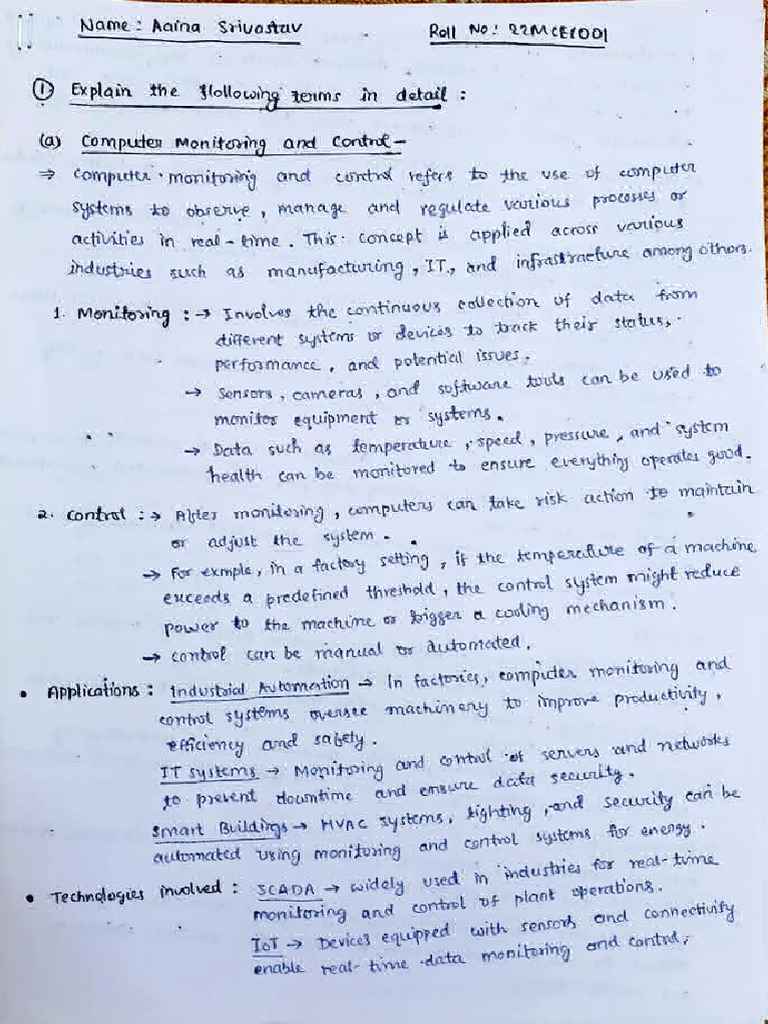 Name: Aaina Srivastav Roll No: 22MCEY001
① Explain the following terms in detail :
(a) Computer Monitoring and Control -
⇒ Computer monitoring and control refers to the use of computer
systems to observe, manage and regulate various processes or
activities in real-time. This concept is applied across various
industries such as manufacturing, IT, and infrastracture among others.
1. Monitoring : → Involves the continuous collection of data from
different systems or devices to track their status,
performance, and potential issues.
→ Sensors, cameras, and software tools can be used to
monitor equipment or systems.
→ Data such as temperature, speed, pressure, and system
health can be monitored to ensure everything operates good.
2. Control : → After monitoring, computers can take risk action to maintain
or adjust the system.
→ For exmple, in a factory setting, if the temperature of a machine
exceeds a predefined threshold, the control system might reduce
power to the machine or trigger a cooling mechanism.
→ control can be manual or automated.
• Applications : Industrial Automation → In factories, computer monitoring and
control systems oversee machinery to improve productivity,
efficiency and safety.
IT systems → Monitoring and control of servers and networks
to prevent downtime and ensure data security.
Smart Buildings → HVAC systems, lighting, and security can be
automated using monitoring and control systems for energy.
• Technologies involved : SCADA → widely used in industries for real-time
monitoring and control of plant operations.
IoT → Devices equipped with sensors and connectivity
enable real-time data monitoring and control.